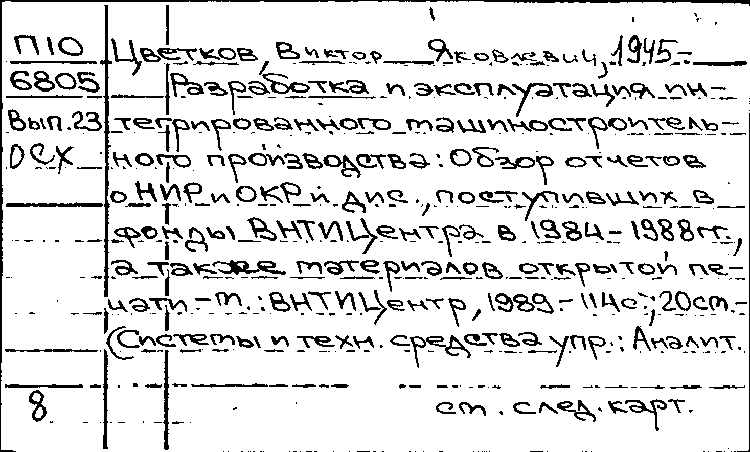 П10 Цветков, Виктор Яковлевич, 1945-
6805 Разработка и эксплуатация ин-
Вып.23 тегрированного машиностроитель-
ОСХ ного производства: Обзор отчетов
о НИР и ОКР и дис., поступивших в
фонды ВНТИЦентра в 1984-1988гг.,
а также материалов открытой пе-
чати.-М.: ВНТИЦентр, 1989.-114с.; 20см.-
(Системы и техн. средства упр.: Аналит.
8 см. след. карт.